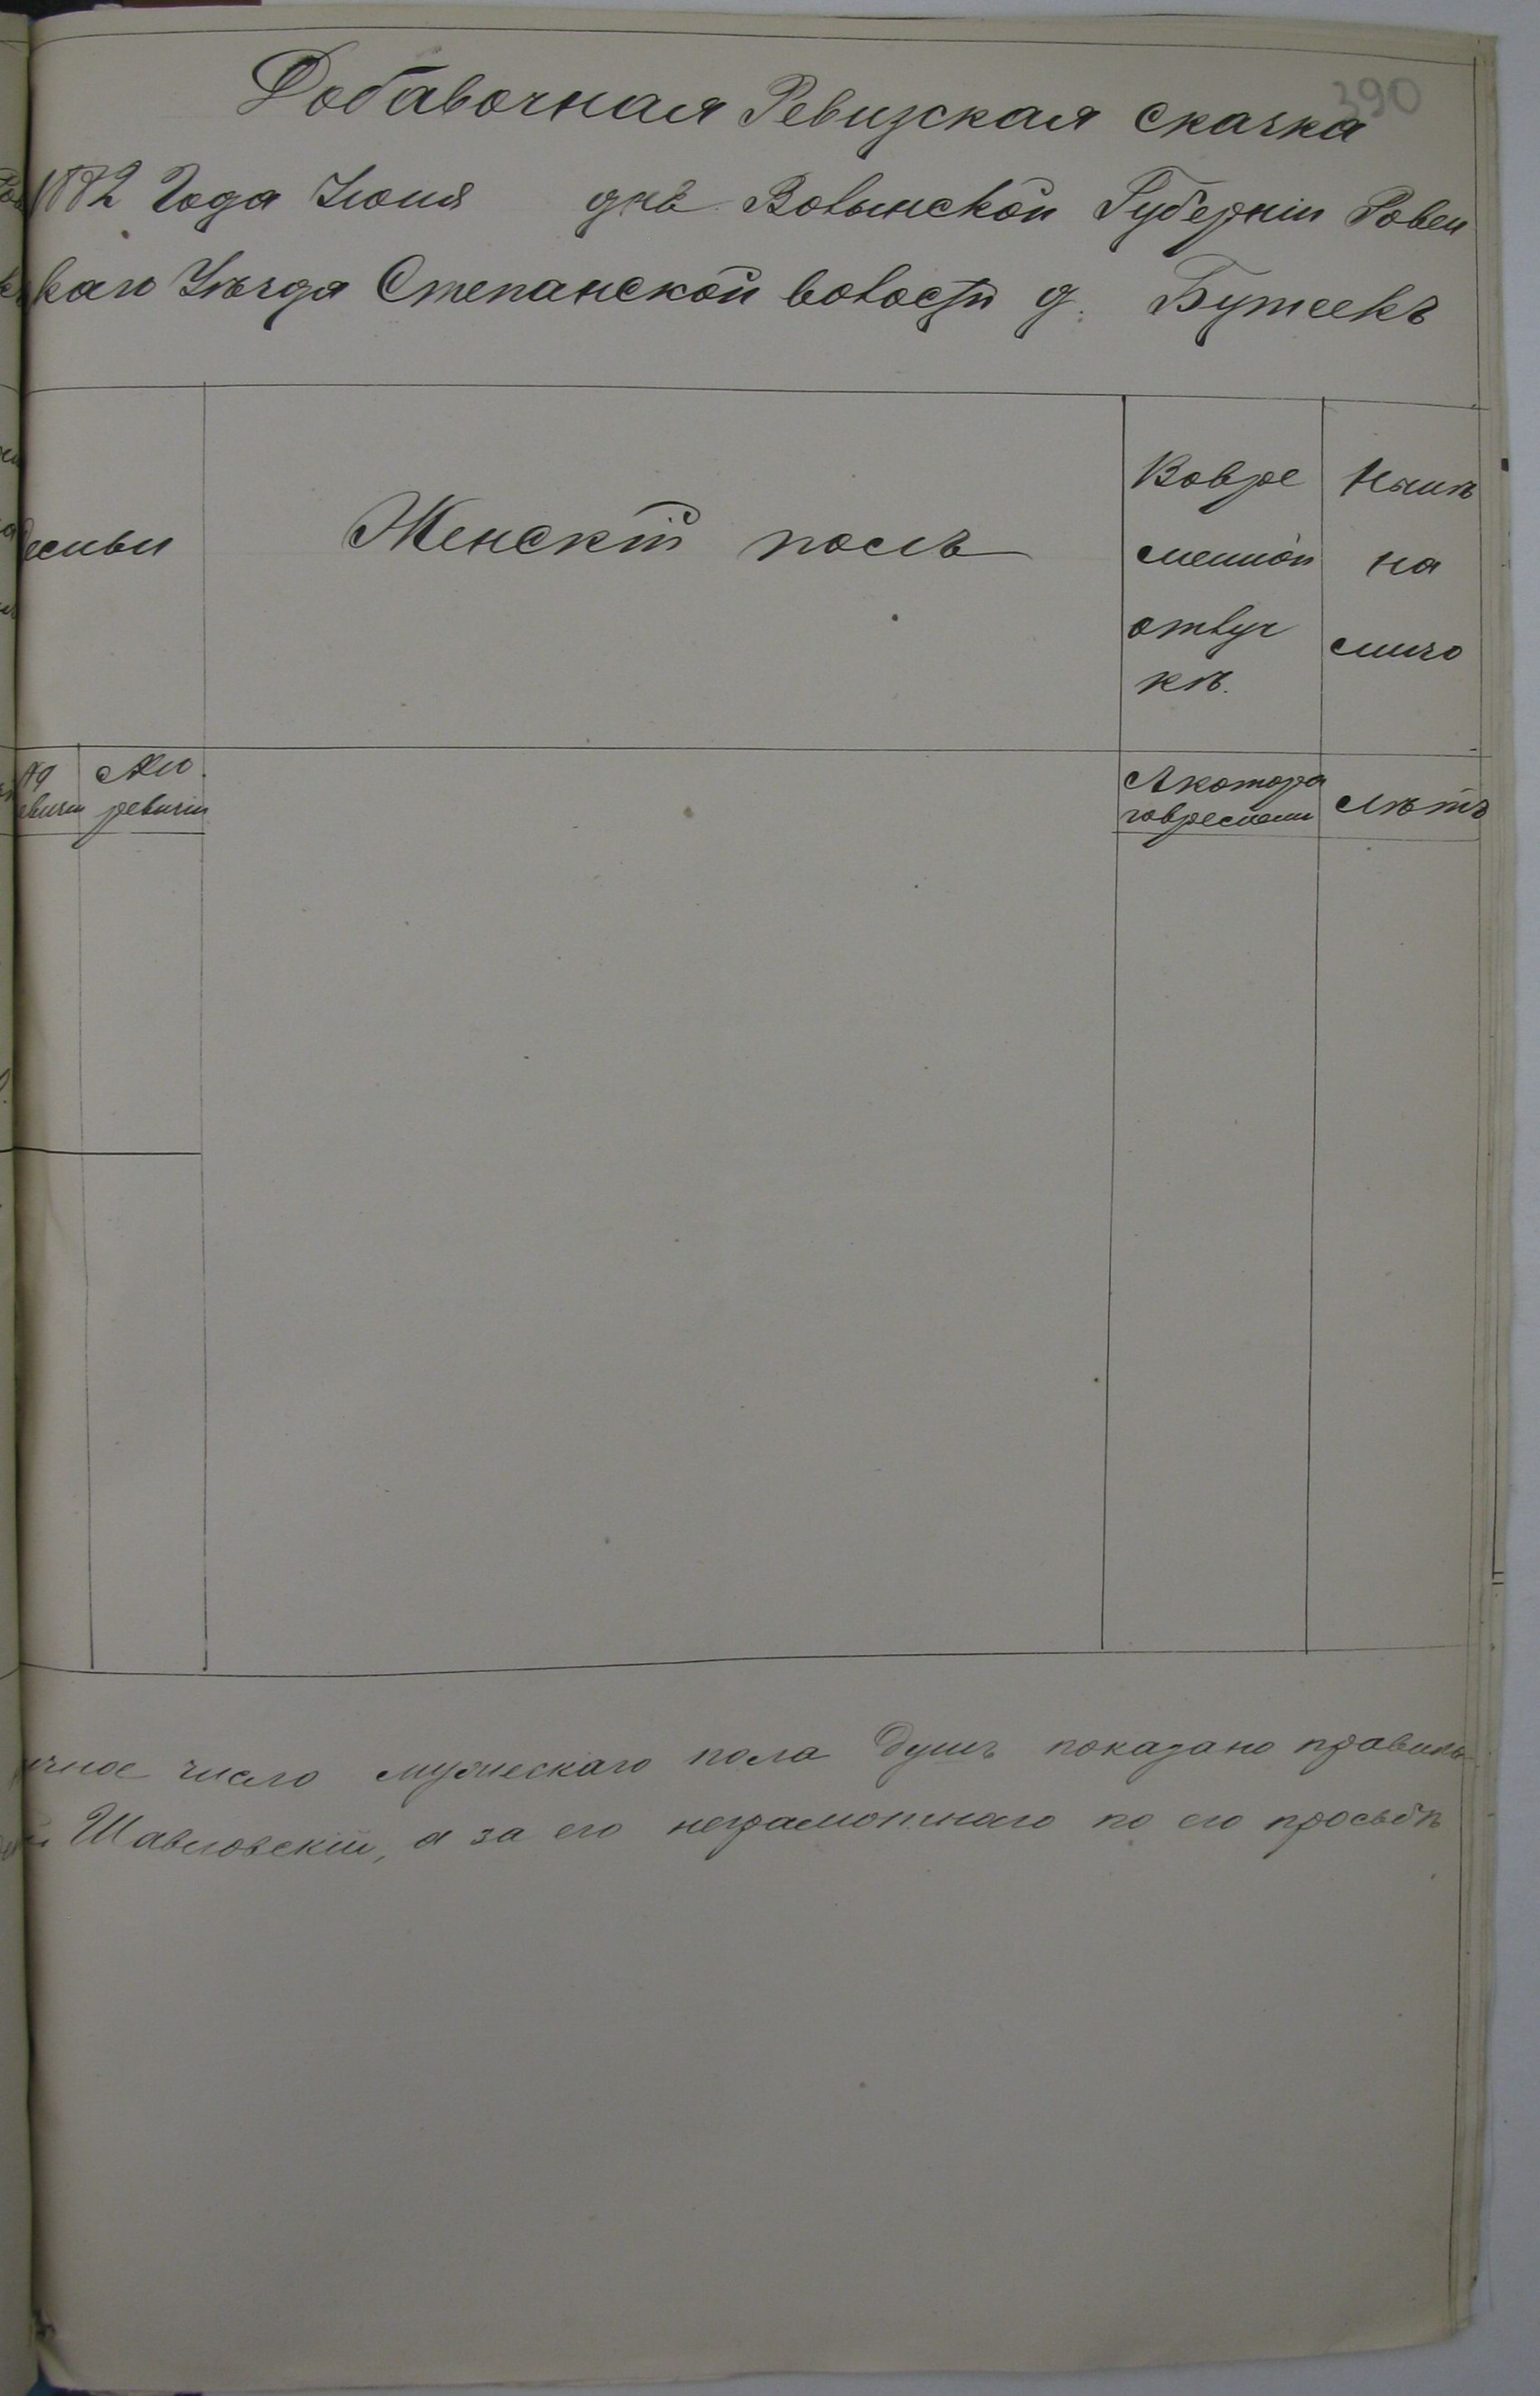 390
Добавочная Ревизская сказка
1882 Года Июня дня Волынской Губерніи Ровен
каго Уѣзда Степанской волости д. Бутеекъ
Женскій полъ
Вовре
менной
отлуч
кѣ.
Нынѣ
на
лицо
семьи
Ню
ревизіи
Скотора
говремени
Лѣтъ
ичное число мужескаго пола душъ показано правиль
Шавловскій, а за его неграмотнаго по его просьбѣ